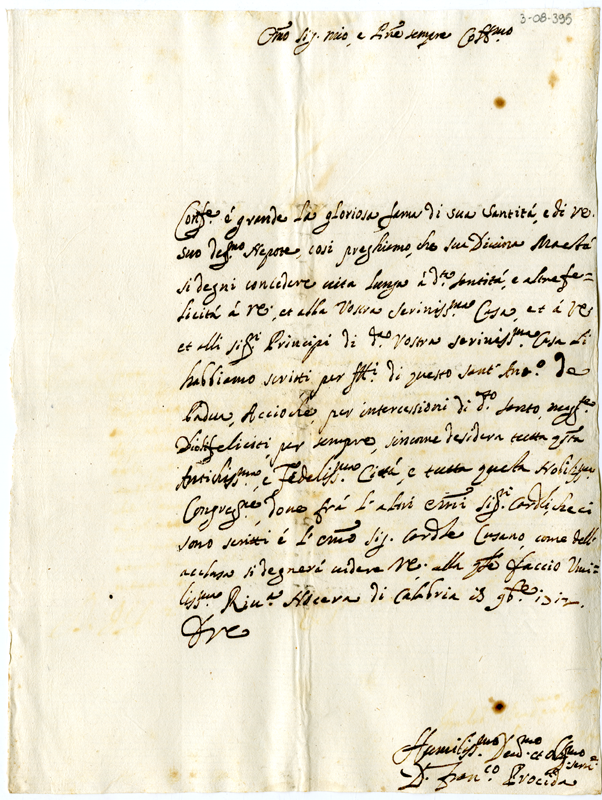 3-08-395
Em̃o Sig. mio, e Pñe sempre Coll.mo
Conf.e é grande la gloriosa fama di sua Santitá, e di VE.
suo deg.mo Nepote, cosi preghiamo, che sua Divina Maestá
si degni concedere vita lunga á d.ta Santitá, e altre fe=
licitá á VE, et alla Vostra Sereniss.ma Casa, et á VE
et alli sig.ri Principi di d.a Vostra Sereniss.ma Casa li
habbiamo scritti per f̃lli di questo sant' Ant.o de
Padua, Accioché, per intercessioni di d.o santo,
feliciti per sempre, sincome desidera tutta q̃sta
Antichiss.ma e Fedeliss.ma Cittá, e tutta quela Nobiliss.ma
Congreg.ne, dove frá l'altri em̃i sig.ri Cardli, che ci
sono scritti é l'em̃o sig. Cardle Cusano come dell'
acclusa si degnerá videre VE. alla q̃le faccio Umi=
liss.ma Riv.a Nocera di Calabria 18 9b.re 1712.
D VE
Humiliss.mo Dev.mo et Oblig.mo serv.e
D. Fran.co Procida